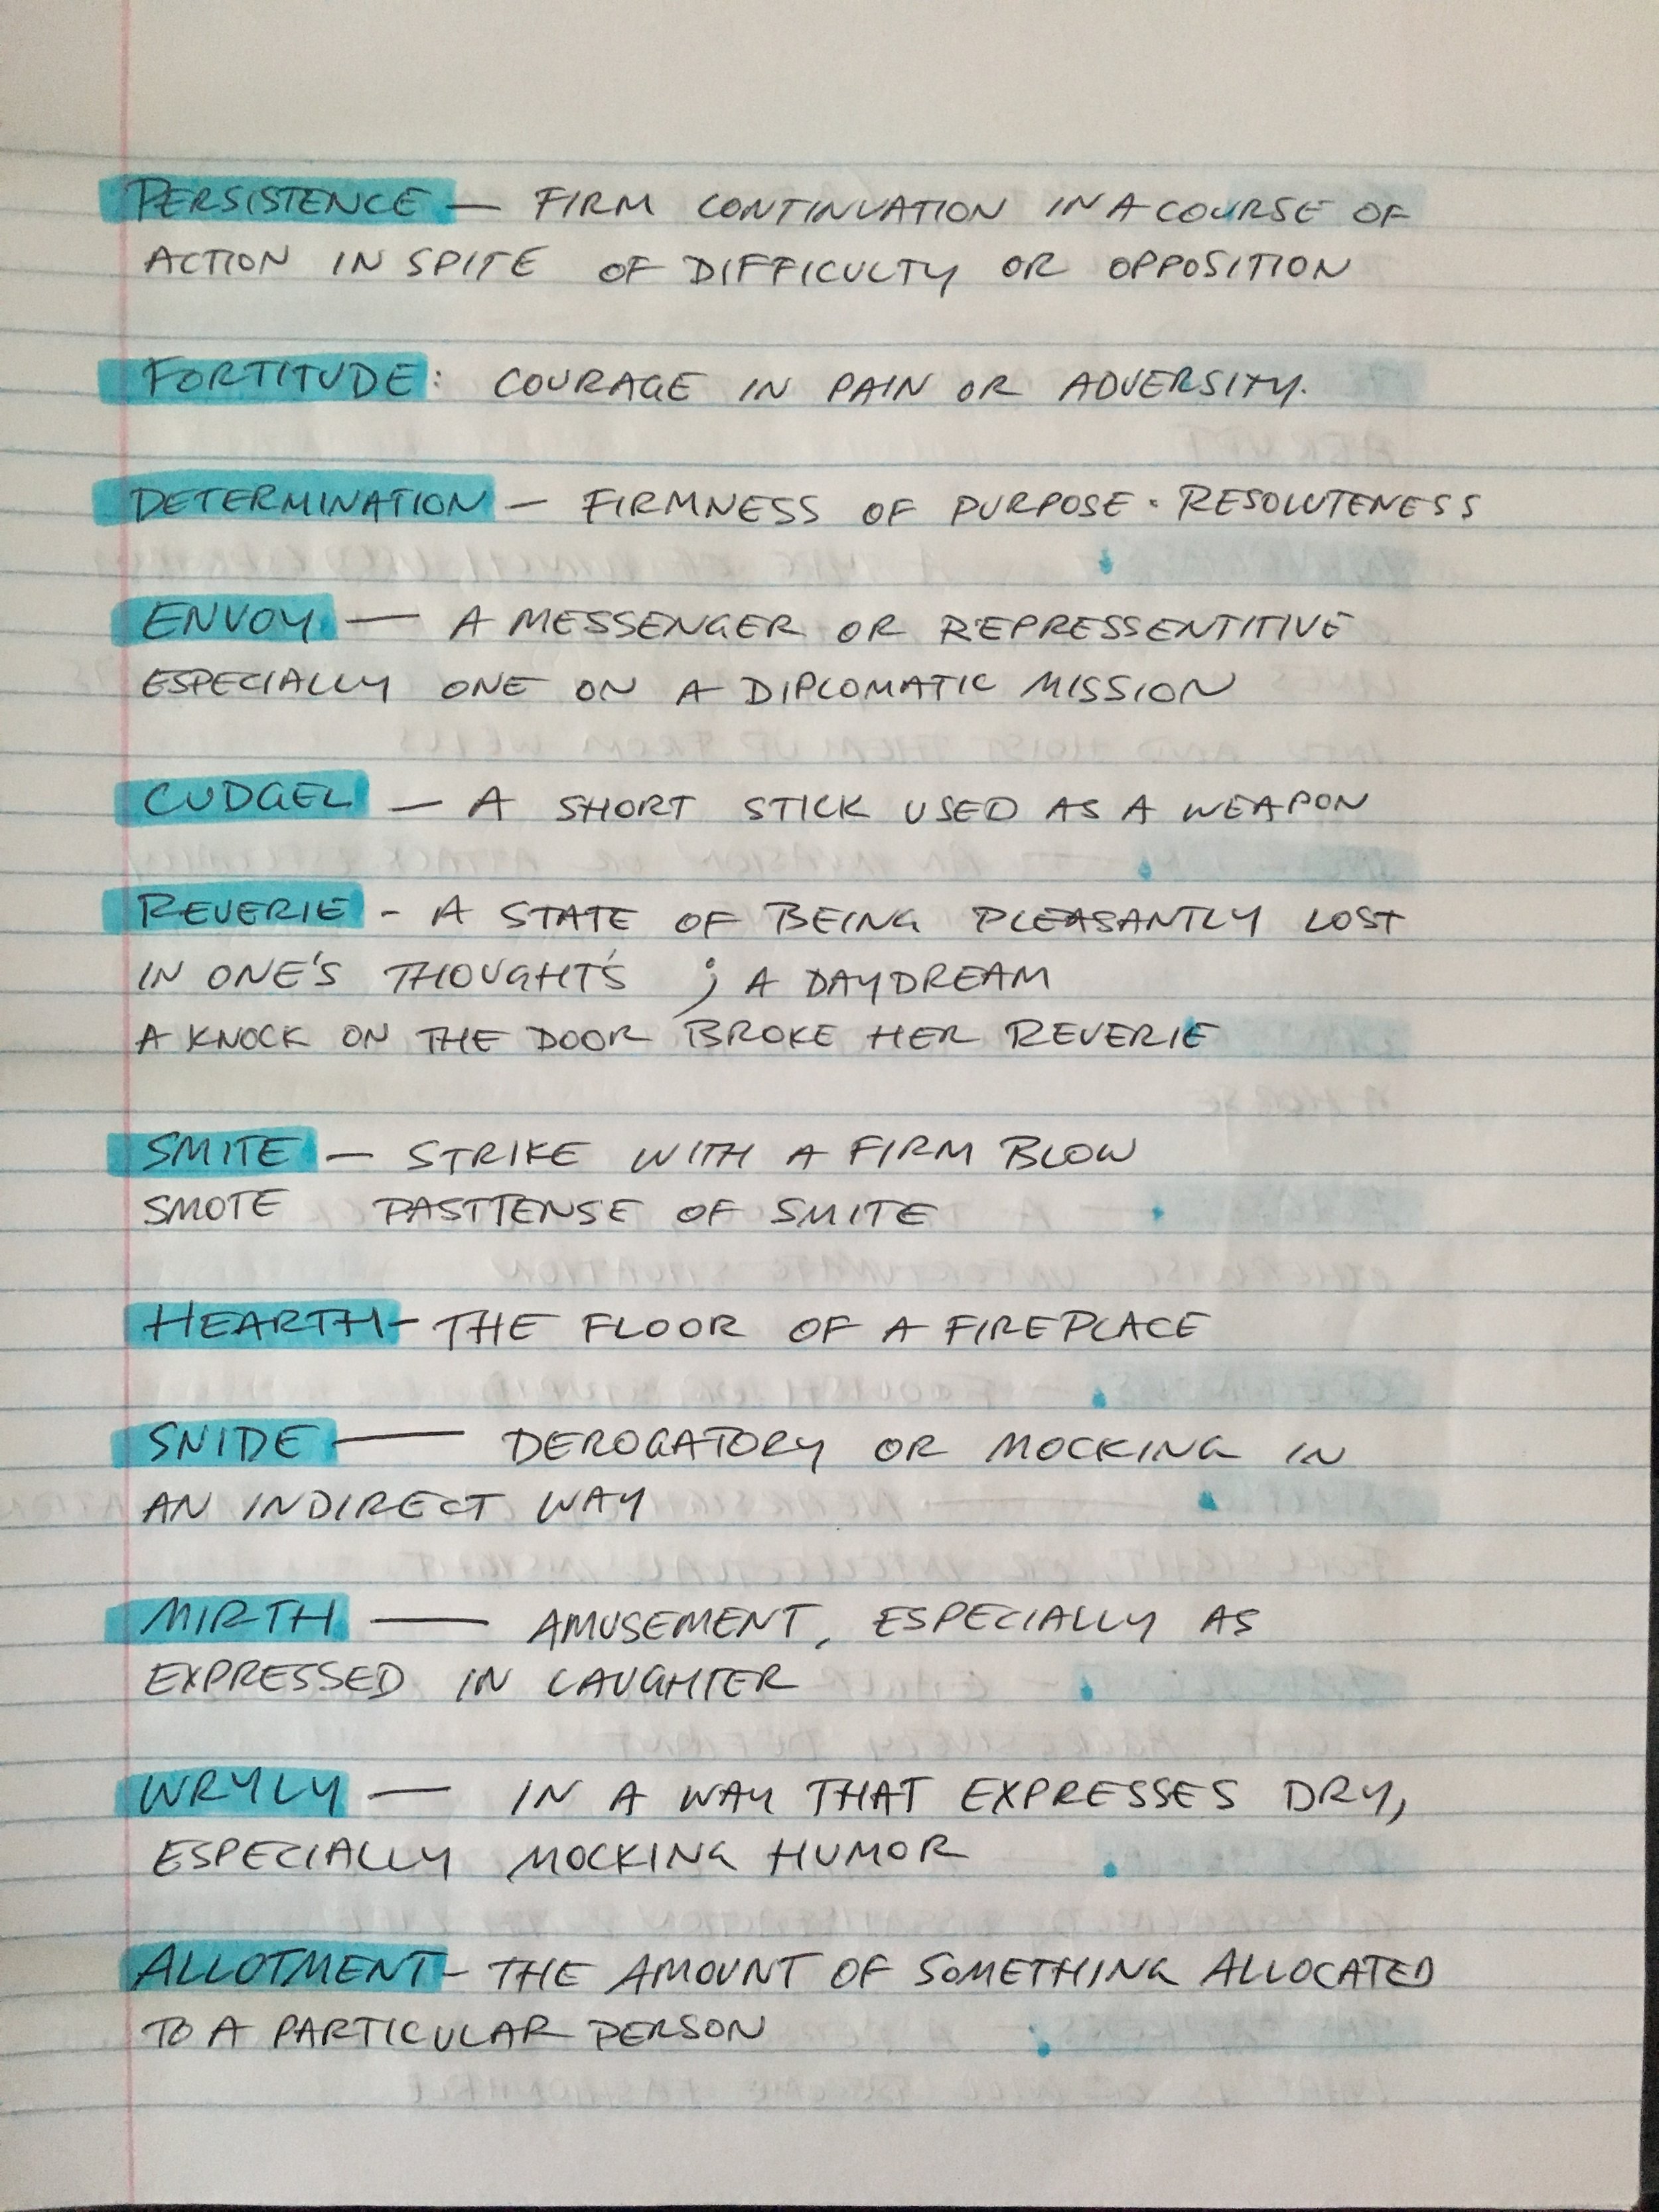 PERSISTENCE — FIRM CONTINUATION IN A COURSE OF
ACTION IN SPITE OF DIFFICULTY OR OPPOSITION
FORTITUDE: COURAGE IN PAIN OR ADVERSITY.
DETERMINATION — FIRMNESS OF PURPOSE. RESOLUTENESS
ENVOY — A MESSENGER OR REPRESSENTITIVE
ESPECIALLY ONE ON A DIPLOMATIC MISSION
CUDGEL — A SHORT STICK USED AS A WEAPON
REVERIE - A STATE OF BEING PLEASANTLY LOST
IN ONE'S THOUGHT'S ; A DAYDREAM
A KNOCK ON THE DOOR BROKE HER REVERIE
SMITE — STRIKE WITH A FIRM BLOW
SMOTE PASTTENSE OF SMITE
HEARTH - THE FLOOR OF A FIREPLACE
SNIDE — DEROGATORY OR MOCKING IN
AN INDIRECT WAY
MIRTH — AMUSEMENT, ESPECIALLY AS
EXPRESSED IN LAUGHTER
WRYLY — IN A WAY THAT EXPRESSES DRY,
ESPECIALLY MOCKING HUMOR
ALLOTMENT - THE AMOUNT OF SOMETHING ALLOCATED
TO A PARTICULAR PERSON